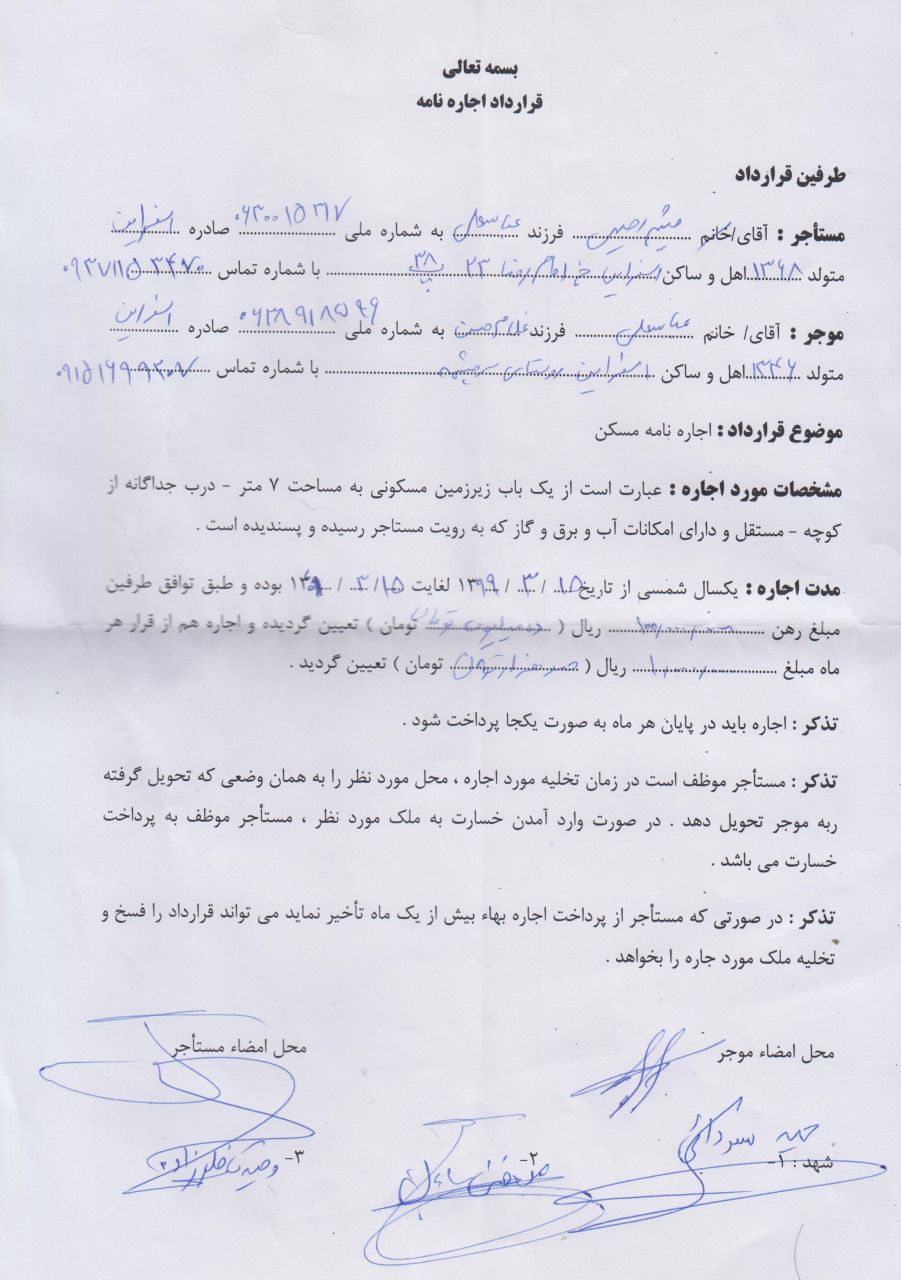 بسمه تعالی
قرارداد اجاره نامه
طرفین قرارداد
مستأجر : آقای/خانم میثم حسین فرزند عباسعلی به شماره ملی صادره اسفراین
متولد ۱۳۶۸ اهل و ساکن اسفراین خ امام رضا ۲۳ پ ۳۸ با شماره تماس
موجر : آقای/ خانم عباسعلی فرزند غلامحسین به شماره ملی صادره اسفراین
متولد ۱۳۴۶ اهل و ساکن اسفراین روستای سرچشمه با شماره تماس
موضوع قرارداد : اجاره نامه مسکن
مشخصات مورد اجاره : عبارت است از یک باب زیرزمین مسکونی به مساحت ۷ متر – درب جداگانه از
کوچه – مستقل و دارای امکانات آب و برق و گاز که به رویت مستاجر رسیده و پسندیده است .
مدت اجاره : یکسال شمسی از تاریخ ۱۵ / ۳ / ۱۳۹۹ لغایت ۱۵ / ۳ / بوده و طبق توافق طرفین
مبلغ رهن ۱۰۰/۰۰۰/۰۰۰ ریال ( ده میلیون تومان تومان ) تعیین گردیده و اجاره هم از قرار هر
ماه مبلغ ۱/۰۰۰/۰۰۰ ریال ( صد هزار تومان تومان ) تعیین گردید .
تذکر : اجاره باید در پایان هر ماه به صورت یکجا پرداخت شود .
تذکر : مستأجر موظف است در زمان تخلیه مورد اجاره ، محل مورد نظر را به همان وضعی که تحویل گرفته
ربه موجر تحویل دهد . در صورت وارد آمدن خسارت به ملک مورد نظر ، مستأجر موظف به پرداخت
خسارت می باشد .
تذکر : در صورتی که مستأجر از پرداخت اجاره بهاء بیش از یک ماه تأخیر نماید می تواند قرارداد را فسخ و
تخلیه ملک مورد جاره را بخواهد .
محل امضاء موجر
محل امضاء مستأجر
شهد : ۱-
۲-
۳-